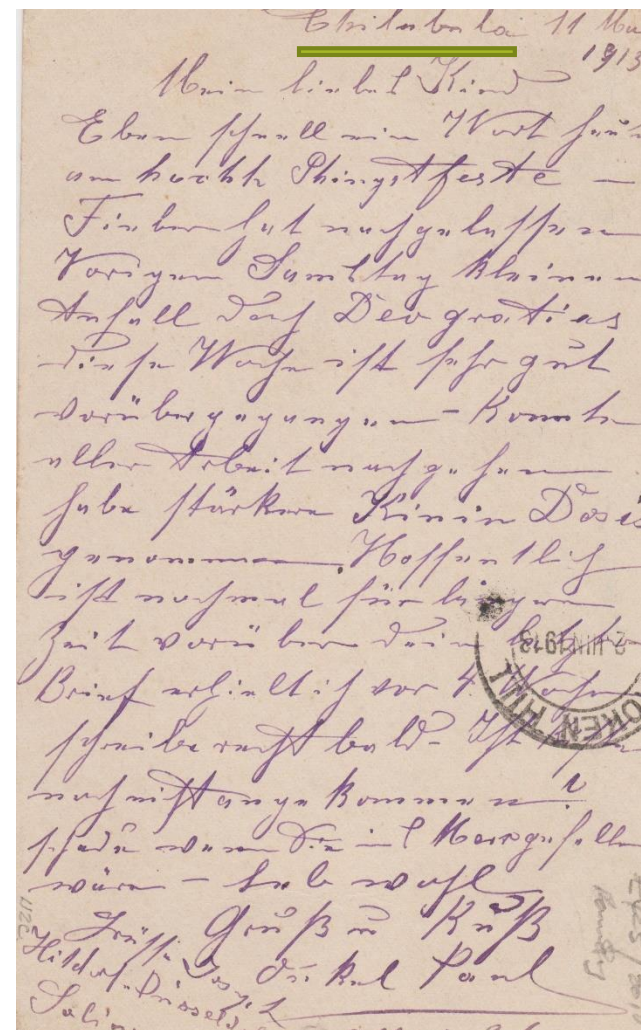 Chilubula 11 Mai
1913
Mein liebes Kind
Eben schnell ein Wort heut
am hochh Phingstfeste —
Fieber hat nachgelassen
Vorigen Samstag kleinen
Anfall doch Deo gratias
diese Woche ist sehr gut
vorübergegangen – Konnte
aller Arbeit nachgehen
habe stärkere Kinin Dosis
genommen. Hoffentlich
ist nochmal für längere
Zeit vorüber dein letzter
Brief erhielt ich vor 4 Wochen
schreibe recht bald – Ist
noch nicht angekommen?
schade wenn sie ins Meer gefallen
wäre – Leb wohl
Gruß u Kuß
Grüsse Joseph Onkel Paul
Hitdorf Düsseld
2. JUN 1913
OKEN HILL